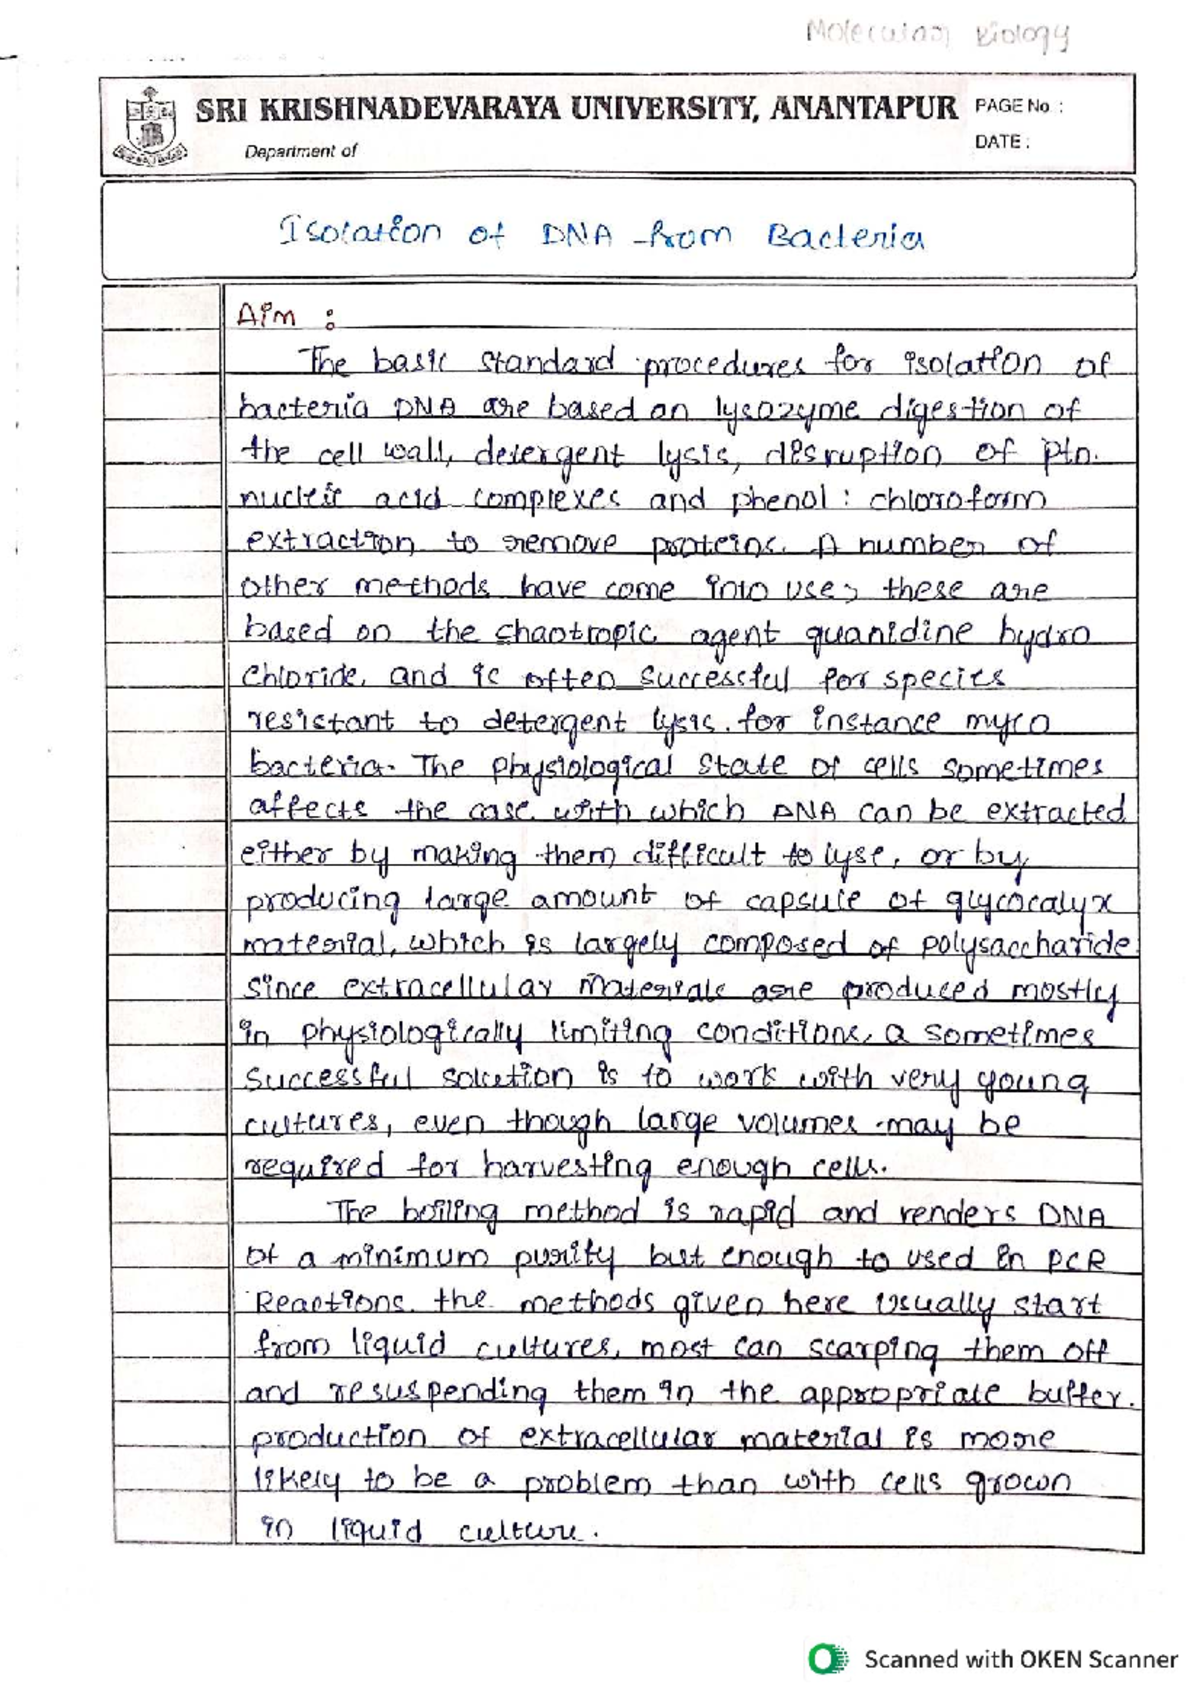 Molecular Biology
SRI KRISHNADEVARAYA UNIVERSITY, ANANTAPUR PAGE No. :
Department of DATE :
Isolation of DNA from Bacteria
Aim :
The basic standard procedures for isolation of
bacteria DNA are based on lysozyme digestion of
the cell wall, detergent lysis, disruption of ptn.
nucleic acid complexes and phenol : chloroform
extraction to remove proteins. A number of
other methods have come into use; these are
based on the chaotropic agent quanidine hydro
chloride, and is often successful for species
resistant to detergent lysis. for instance myco
bacteria. The physiological state of cells sometimes
affects the case with which DNA can be extracted
either by making them difficult to lyse, or by
producing large amount of capsule of glycocalyx
material, which is largely composed of polysaccharide.
Since extracellular materials are produced mostly
in physiologically limiting conditions, a sometimes
successful solution is to work with very young
cultures, even though large volumes may be
required for harvesting enough cells.
The boiling method is rapid and renders DNA
of a minimum purity but enough to used in PCR
Reactions. the methods given here usually start
from liquid cultures, most can scarping them off
and resuspending them in the appropriate buffer.
production of extracellular material is more
likely to be a problem than with cells grown
in liquid culture.
Scanned with OKEN Scanner